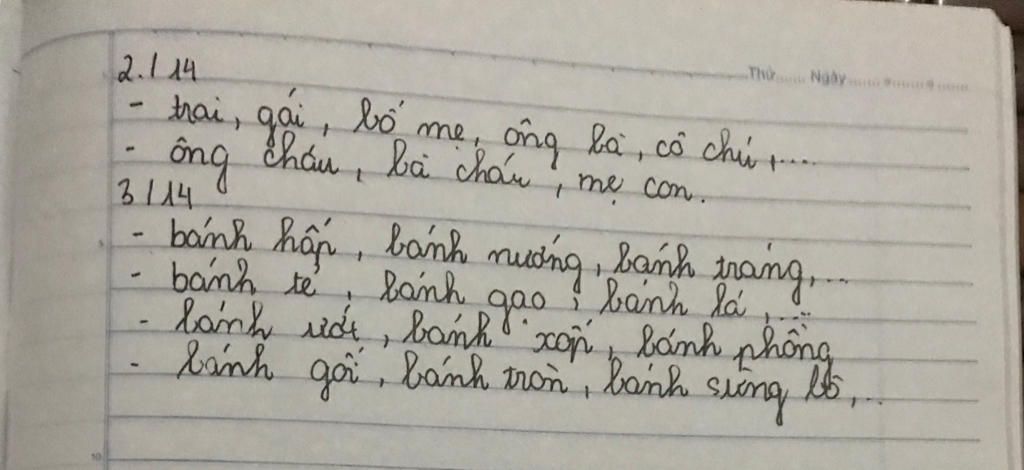 Thứ...... Ngày....................
2.1 14
- trai, gái, bố mẹ, ông bà, cô chú,....
- ông cháu, bà cháu, mẹ con.
3 / 14
- bánh hấp, bánh nướng, bánh tráng,...
- bánh tẻ, bánh gạo, bánh lá,...
- bánh ướt, bánh xốp, bánh phồng
- bánh gối, bánh tròn, bánh sừng bò,...
5
10